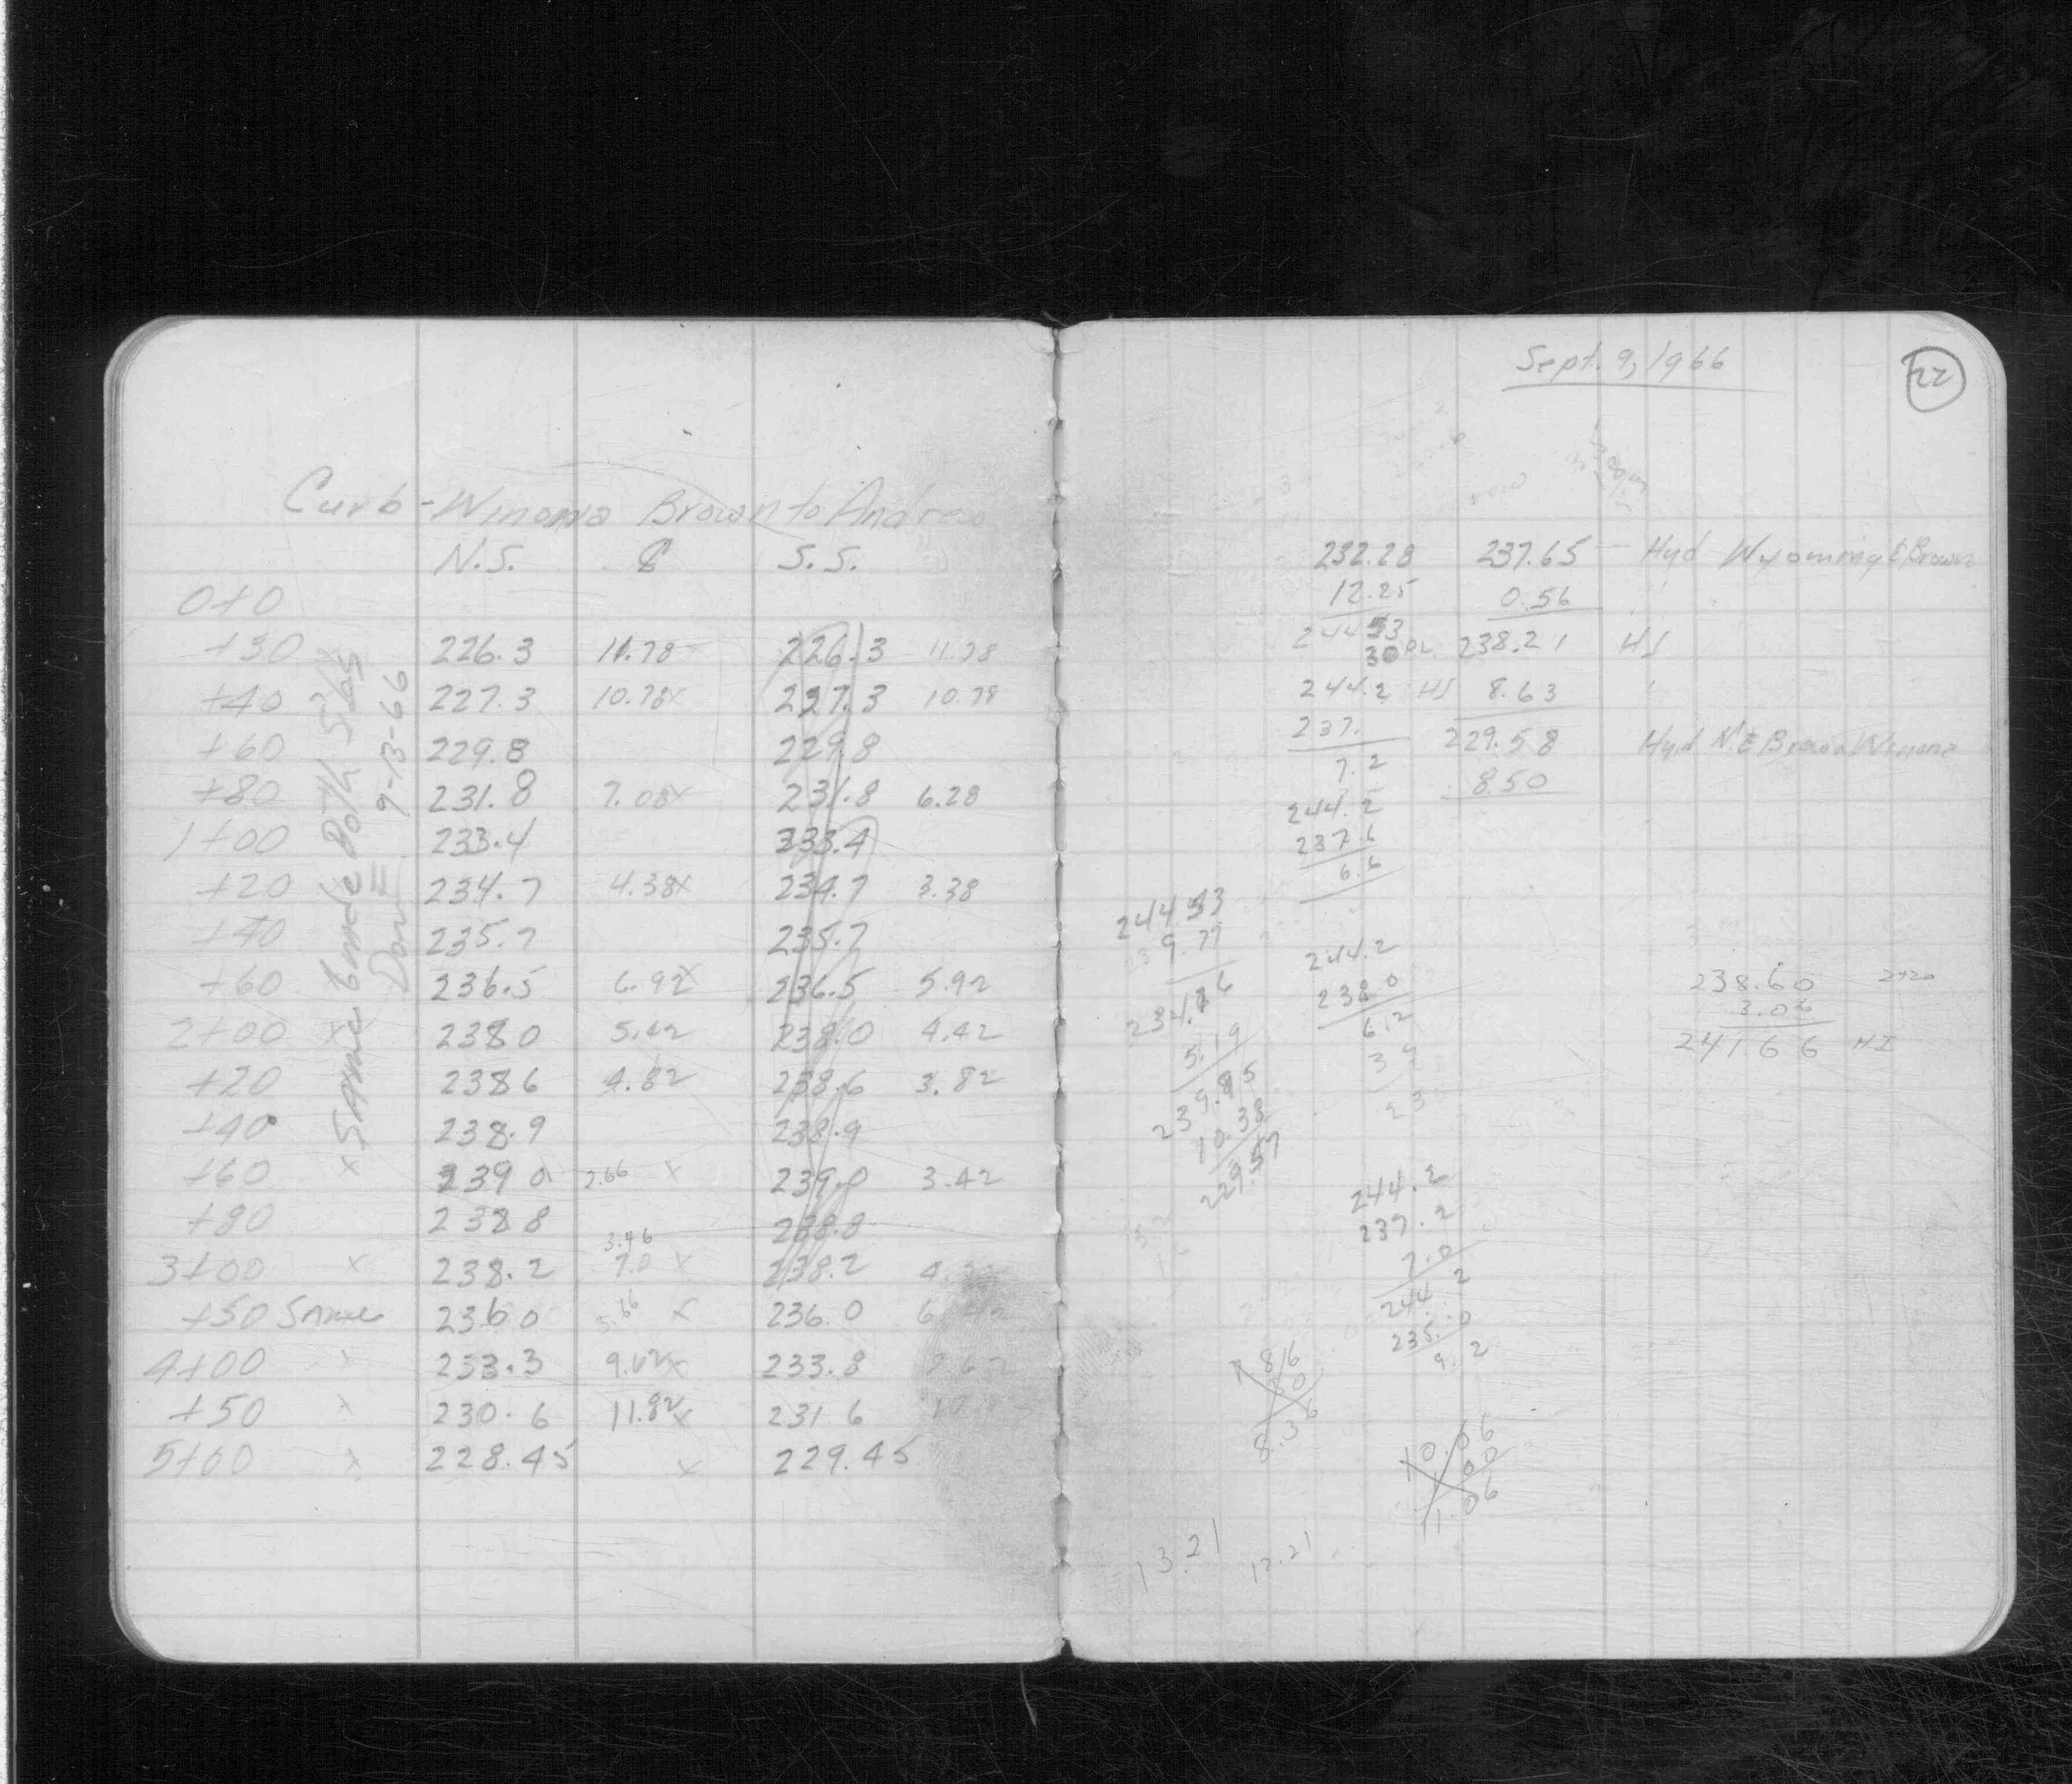 Curb - Winona Brown to Andrew
N.S. ₵ S.S.
0+0
+30 226.3 11.78 226.3 11.78
+40 227.3 10.78x 227.3 10.78
+60 229.8 229.8
+80 231.8 7.08x 231.8 6.28
1+00 233.4 233.4
+20 234.7 4.38x 234.7 3.38
+40 235.7 235.7
+60 236.5 6.92x 236.5 5.92
2+00 x 238 0 5.42 238.0 4.42
+20 238 6 4.82 238.6 3.82
+40 238.9 238.9
+60 x 239 0 2.66 x 239.0 3.42
+80 238 8 238.8
3.46
3+00 x 238.2 7.0 x 238.2
+50 Same 236 0 5.66 x 236.0
4+00 x 233.3 9.02x 233.8
+50 x 230.6 11.82x 231.6
5+00 x 228.45 x 229.45
Same Grade Both Sides
Done 9-13-66
Sept. 9, 1966
22
232.28 237.65 — Hyd Wyoming & Brown
12.25 0.56
244 53 238.21 HI
30
244.2 HI 8.63
237. 229.58 Hyd N.E Brown Winona
7.2 8.50
244.2
237.6
6.6
244 53
9.77
234.76
5.19
239.95
10.38
229.57
244.2
238.0
6.2
3 9
2 3
238.60 2+20
3.06
241 66 HI
244.2
237.2
7.0
244 2
235.0
9.2
8.36
10.06
1 00
11.06
13.21 12.21